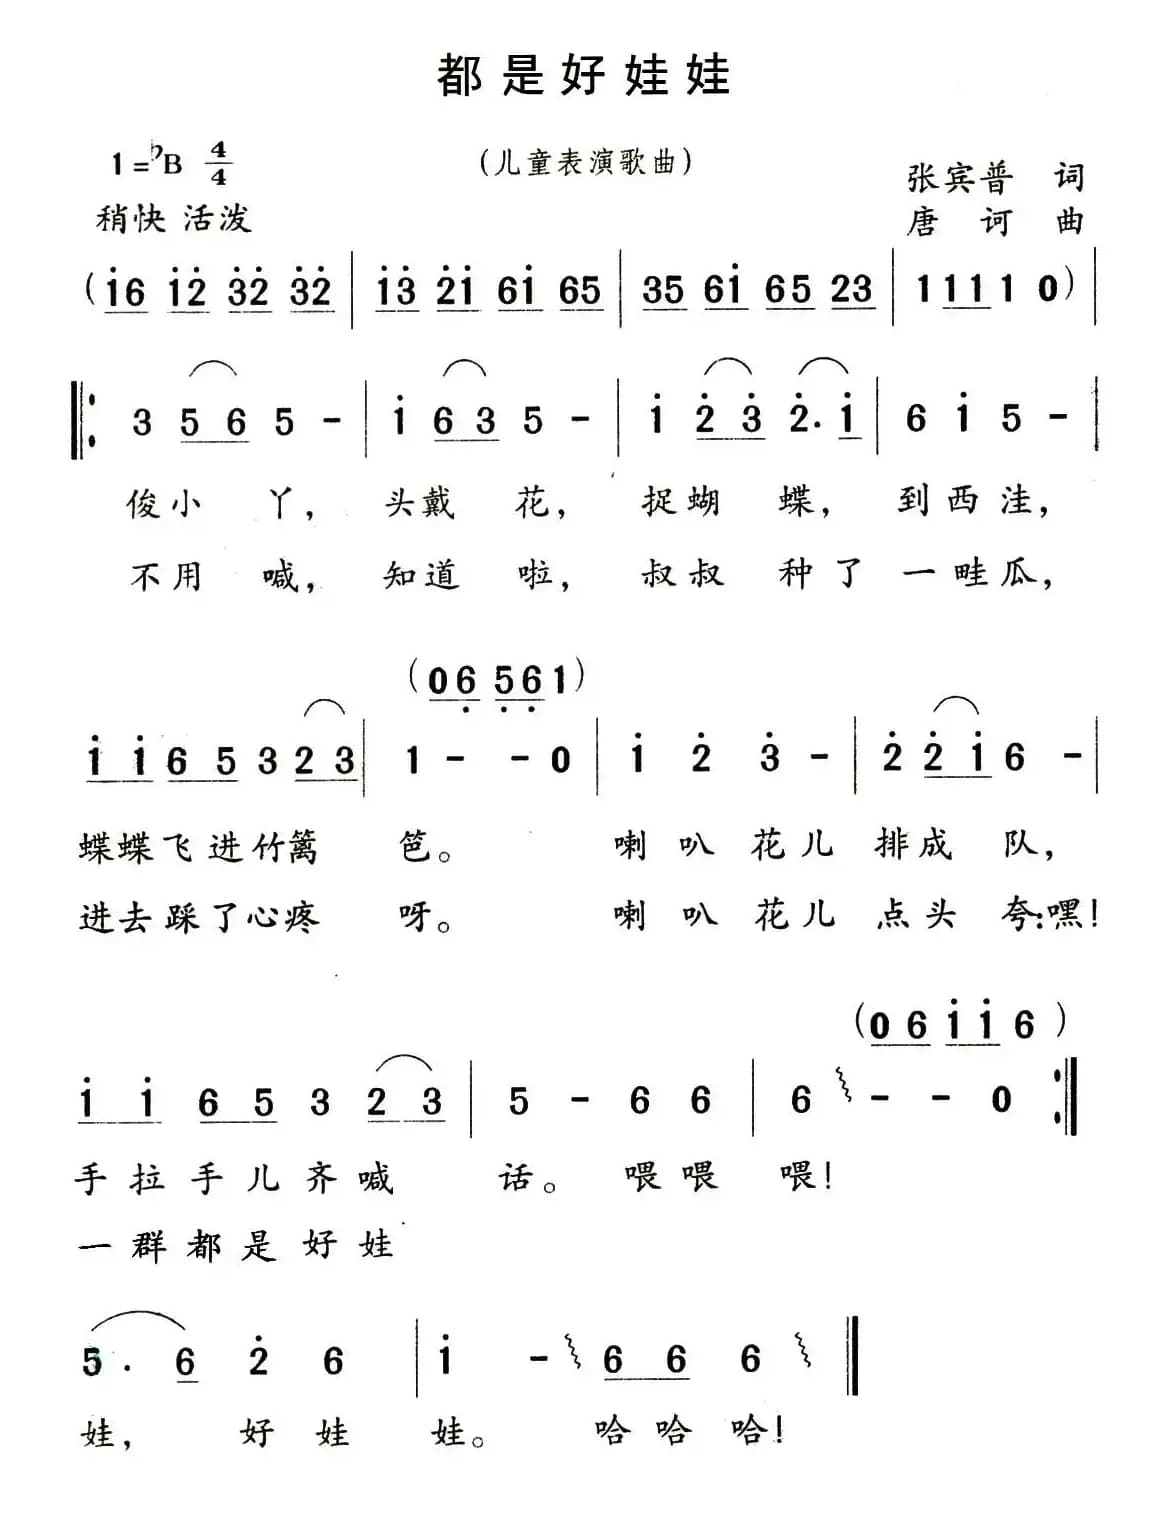 都是好娃娃
1=♭B 4/4
(儿童表演歌曲)
张宾普 词
稍快 活泼
唐诃 曲
(i6 i2̇ 3̇2̇ 3̇2̇ | i3̇ 2̇i 6i 65 | 35 6i 65 23 | 1 11 1 0) |
‖: 3 56 5 - | i 63 5 - | i 2̇3̇ 2̇. i | 6 i 5 - |
俊小 丫, 头戴 花, 捉蝴 蝶, 到西洼,
不用 喊, 知道 啦, 叔叔 种了 一畦瓜,
(06 5̣6̣ 1)
i i 6 5 3 2 3 | 1 - - 0 | i 2̇ 3̇ - | 2̇ 2̇ i 6 - |
蝶蝶飞进竹篱 笆。 喇叭花儿排成 队,
进去踩了心疼 呀。 喇叭花儿点头 夸:嘿!
(06 i i 6)
i i 6 5 3 2 3 | 5 - 6 6 | 6 - - 0 :‖
手拉手儿齐喊 话。 喂喂 喂!
一群都是好娃
5. 6 2̇ 6 | i - 6 6 6 ‖
娃, 好娃 娃。 哈哈哈!